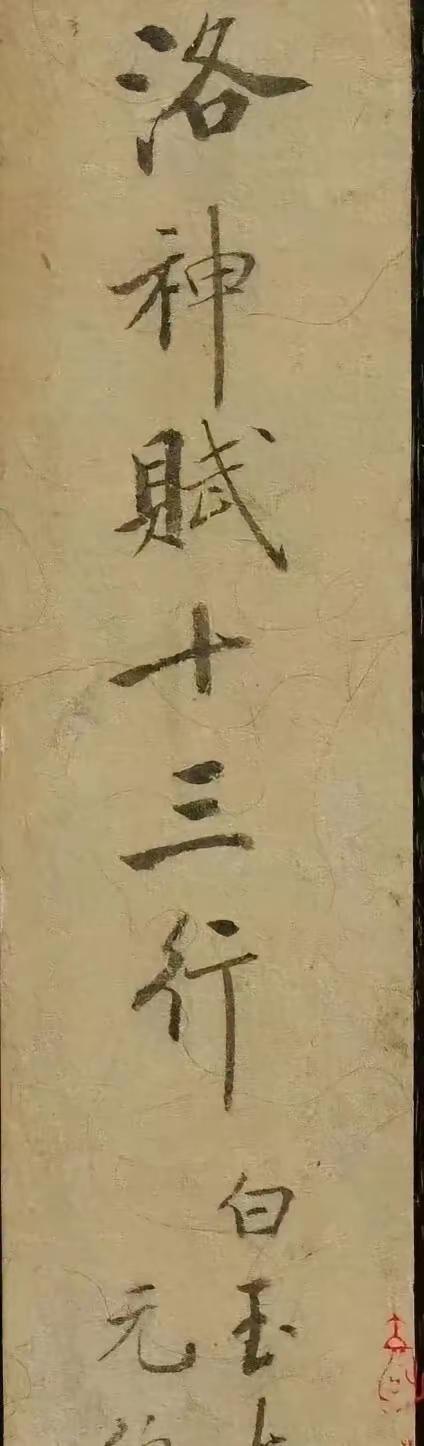 洛神賦十三行
白玉
元